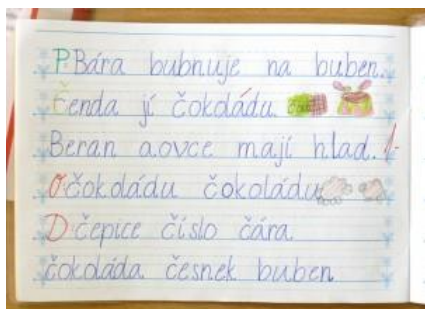 P Bára bubnuje na buben.
Fenda jí čokoládu.
Beran a ovce mají hlad. 1-
O čokoládu čokoládu
D čepice číslo čára
čokoláda česnek buben